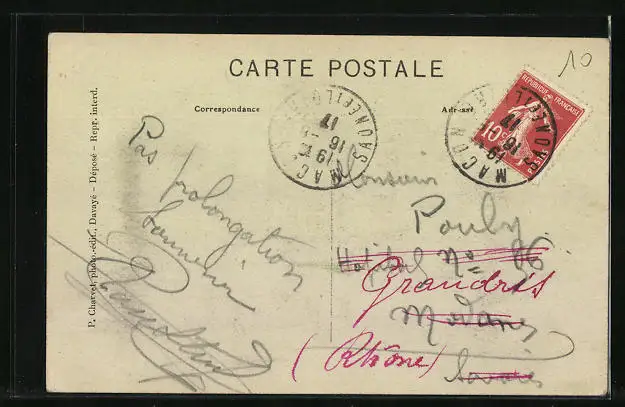 10
CARTE POSTALE
Correspondance
Adresse
REPUBLIQUE FRANÇAISE
10c
POSTES
MACON
SAONE ET LOIRE
17
16
19
MACON
SAONE ET L
17
16
19
P. Charvet, photo.-édit., Davayé - Déposé - Repr. interd.
Pas prolongation
Souvenir
Monsieur
Pouly
Hôpital No 86
Grandris
Modane
(Rhône)
Savoie